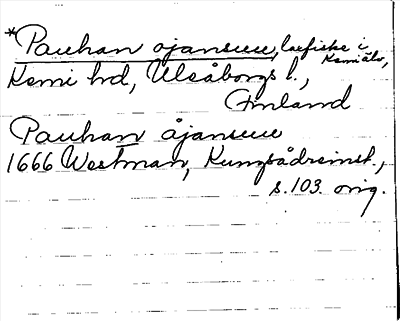 *Pauhan ojansuu, laxfiske i
Kemiälv,
Kemi hd, Uleåborgs l.,
Finland
Pauhan åjansuu
1666 Westman, Kungsådreinst.,
s. 103. orig.